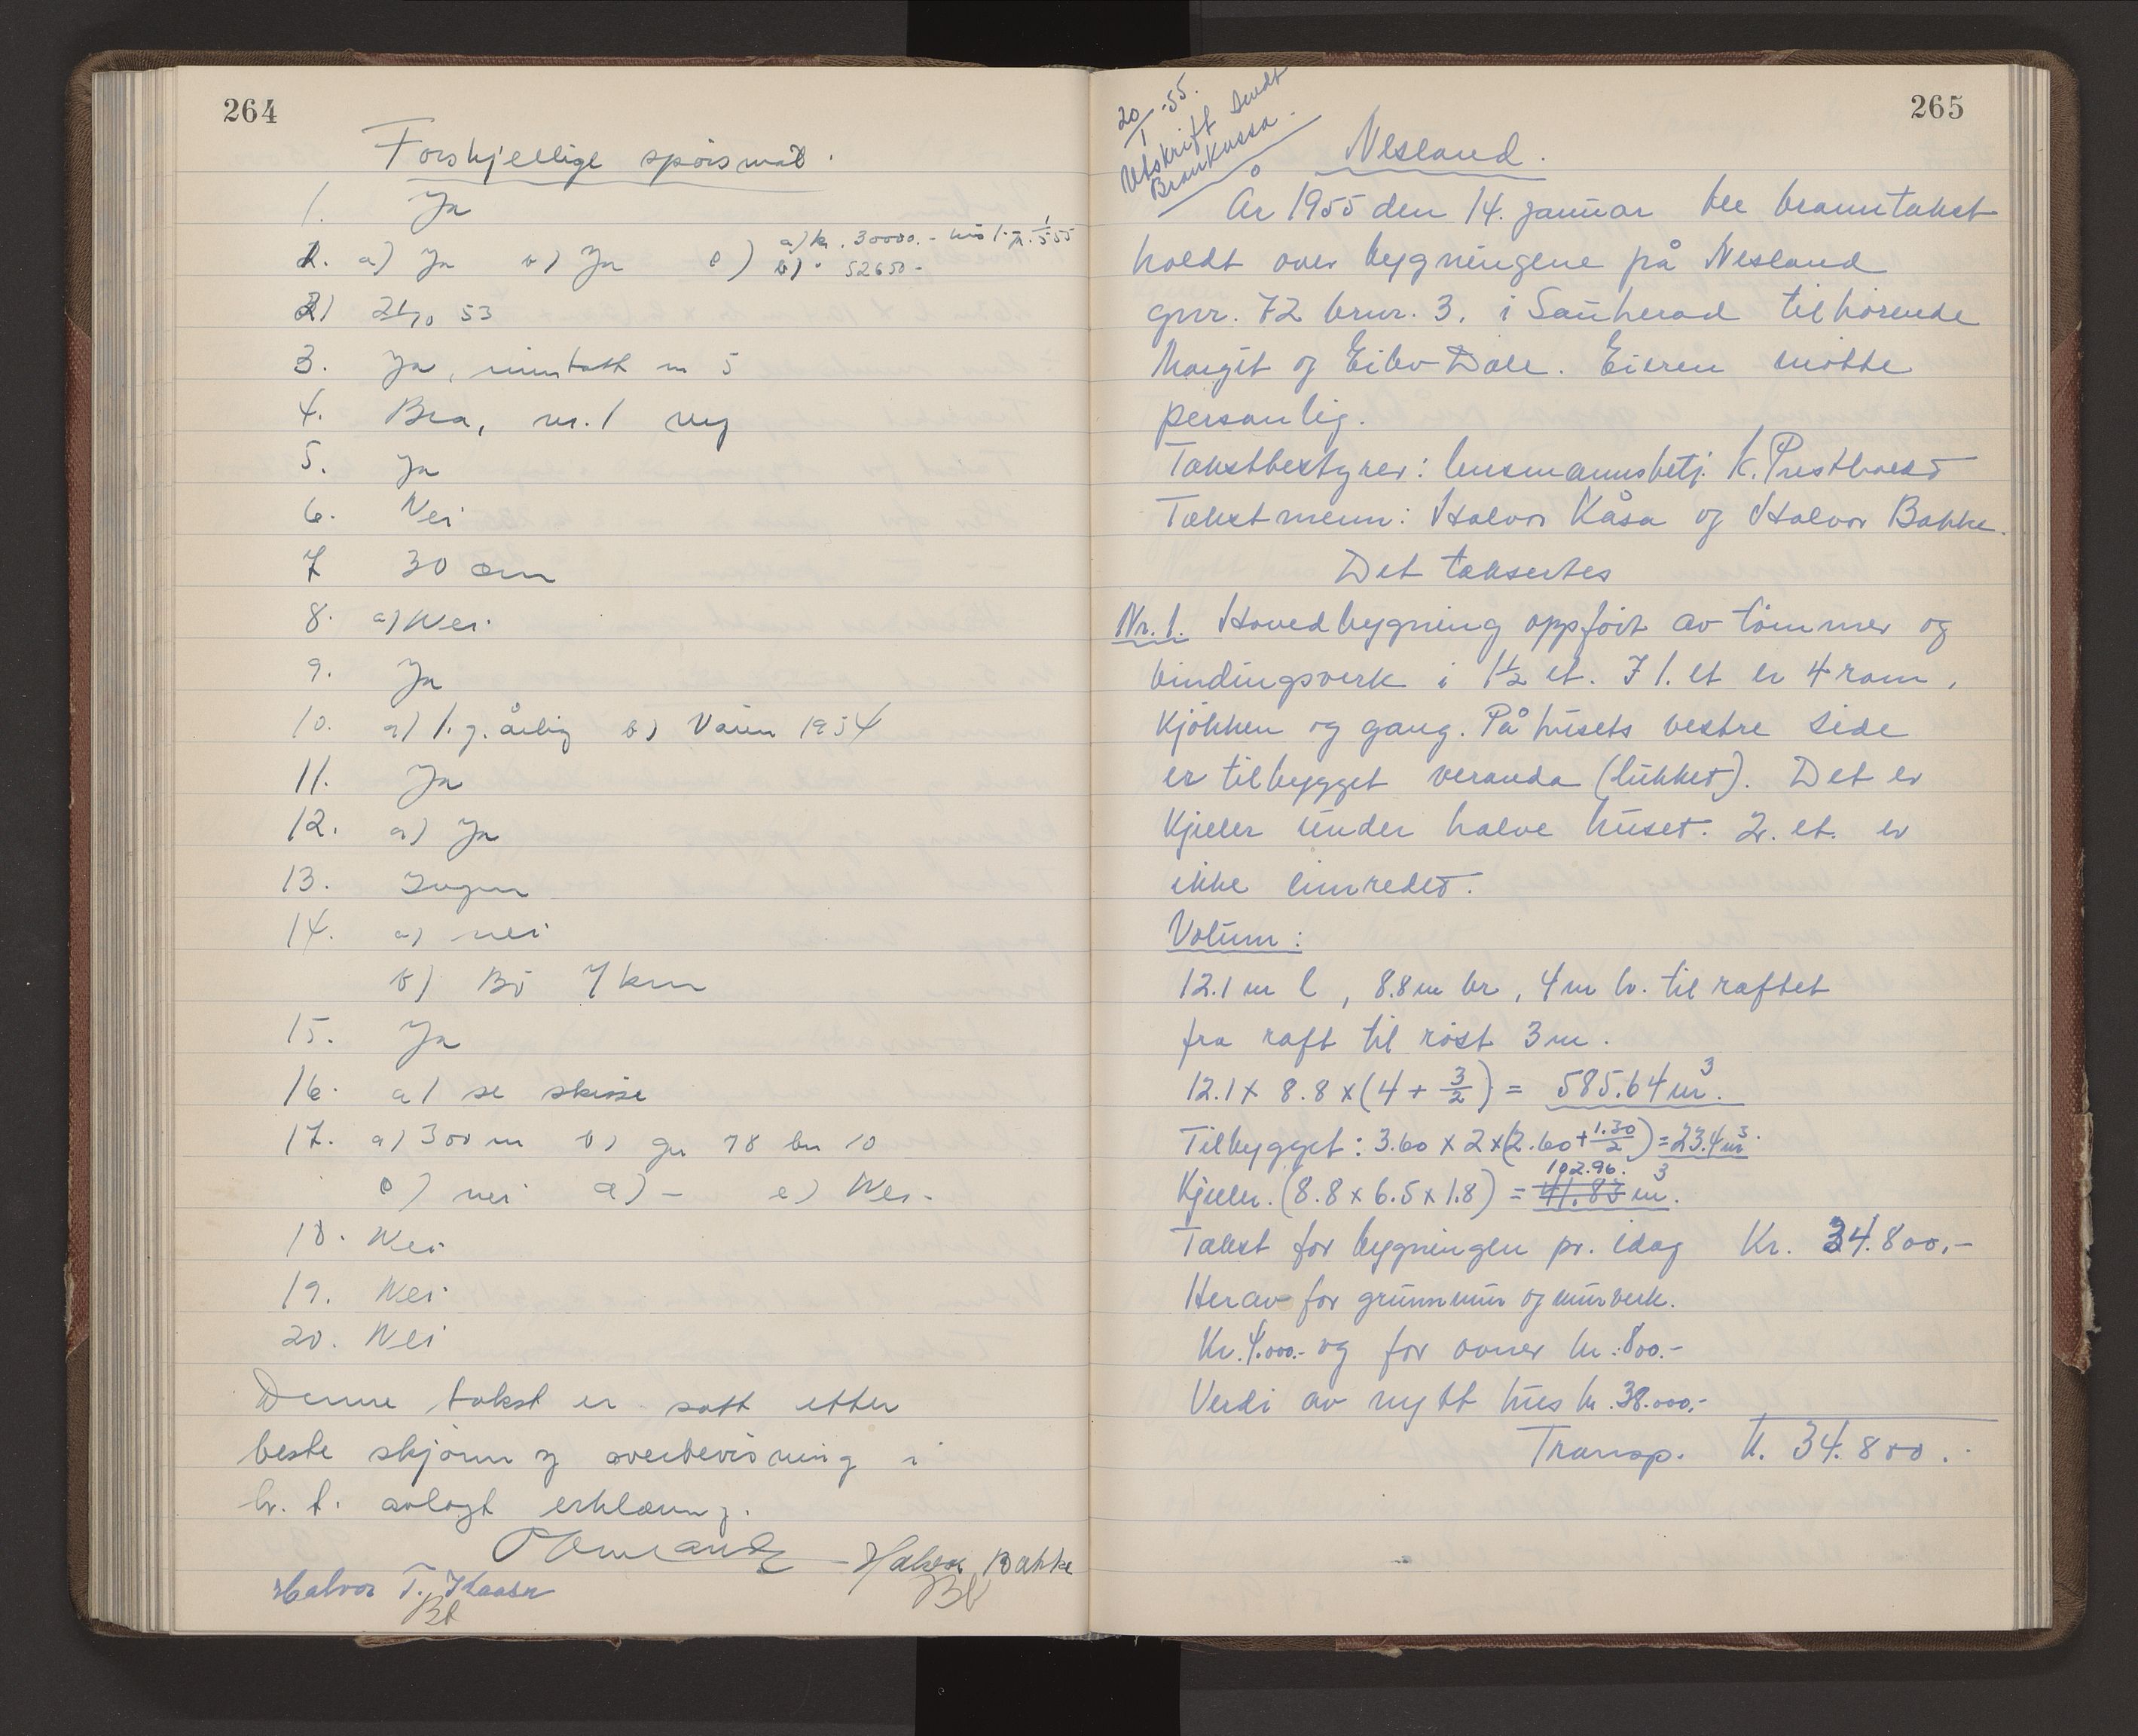 264
Forskjellige spørsmål.
1. Ja
2. a) Ja b) Ja c) a) kr. 30000.-
b) " 52650-
2) 21/10 53
3. Ja, unntatt nr 5
4. Bra, nr. 1 ny
5. Ja
6. Nei
7 30 cm
8. a) Nei.
9. Ja
10. a) 1. g. årlig b) Våren 1954
11. Ja
12. a) Ja
13. Ingen
14. a) nei
b) Bø 7 km
15. Ja
16. a) se skisse
17. a) 300 m b) gn 78 bn 10
c) nei d) - e) Nei-
18. Nei
19. Nei
20. Nei
Denne takst er satt etter
beste skjønn og overbevisning i
h. t. avlagt erklæring.
Halvor Bakke
Halvor T. Kaasa
265
20/1-55.
Utskrift sendt
Brankassa.
Nesland.
År 1955 den 14. januar ble branntakst
holdt over bygningene på Nesland
gnr. 72 brnr. 3. i Sauherad tilhørende
Margit og Eilev Dale. Eieren møtte
personlig.
Takstbestyrer: lensmannsbetj. K. Prestholdt
Takstmenn: Halvor Kåsa og Halvor Bakke.
Det taksertes
Nr. 1. Hovedbygning oppført av tømmer og
bindingsverk i 1½ et. I 1. et er 4 rom,
kjøkken og gang. På husets vestre side
er tilbygget veranda (lukket). Det er
Kjeller under halve huset. 2. et. er
ikke innredet.
Volum:
12.1 m l, 8.8 m br, 4 m h. til raftet
fra raft til røst 3 m.
12.1 x 8.8 x (4 + 3/2) = 585.64 m³.
Tilbygget: 3.60 x 2 x (2.60 + 1.30/2) = 23.4 m³.
102.96.
Kjeller. (8.8 x 6.5 x 1.8) = 41.83 m³.
Takst for bygningen pr. idag Kr. 34.800,-
Herav for grunnmur og murverk.
Kr. 4.000.- og for ovner kr. 800.-
Verdi av nytt hus kr. 38.000,-
Transp. k. 34.800.-